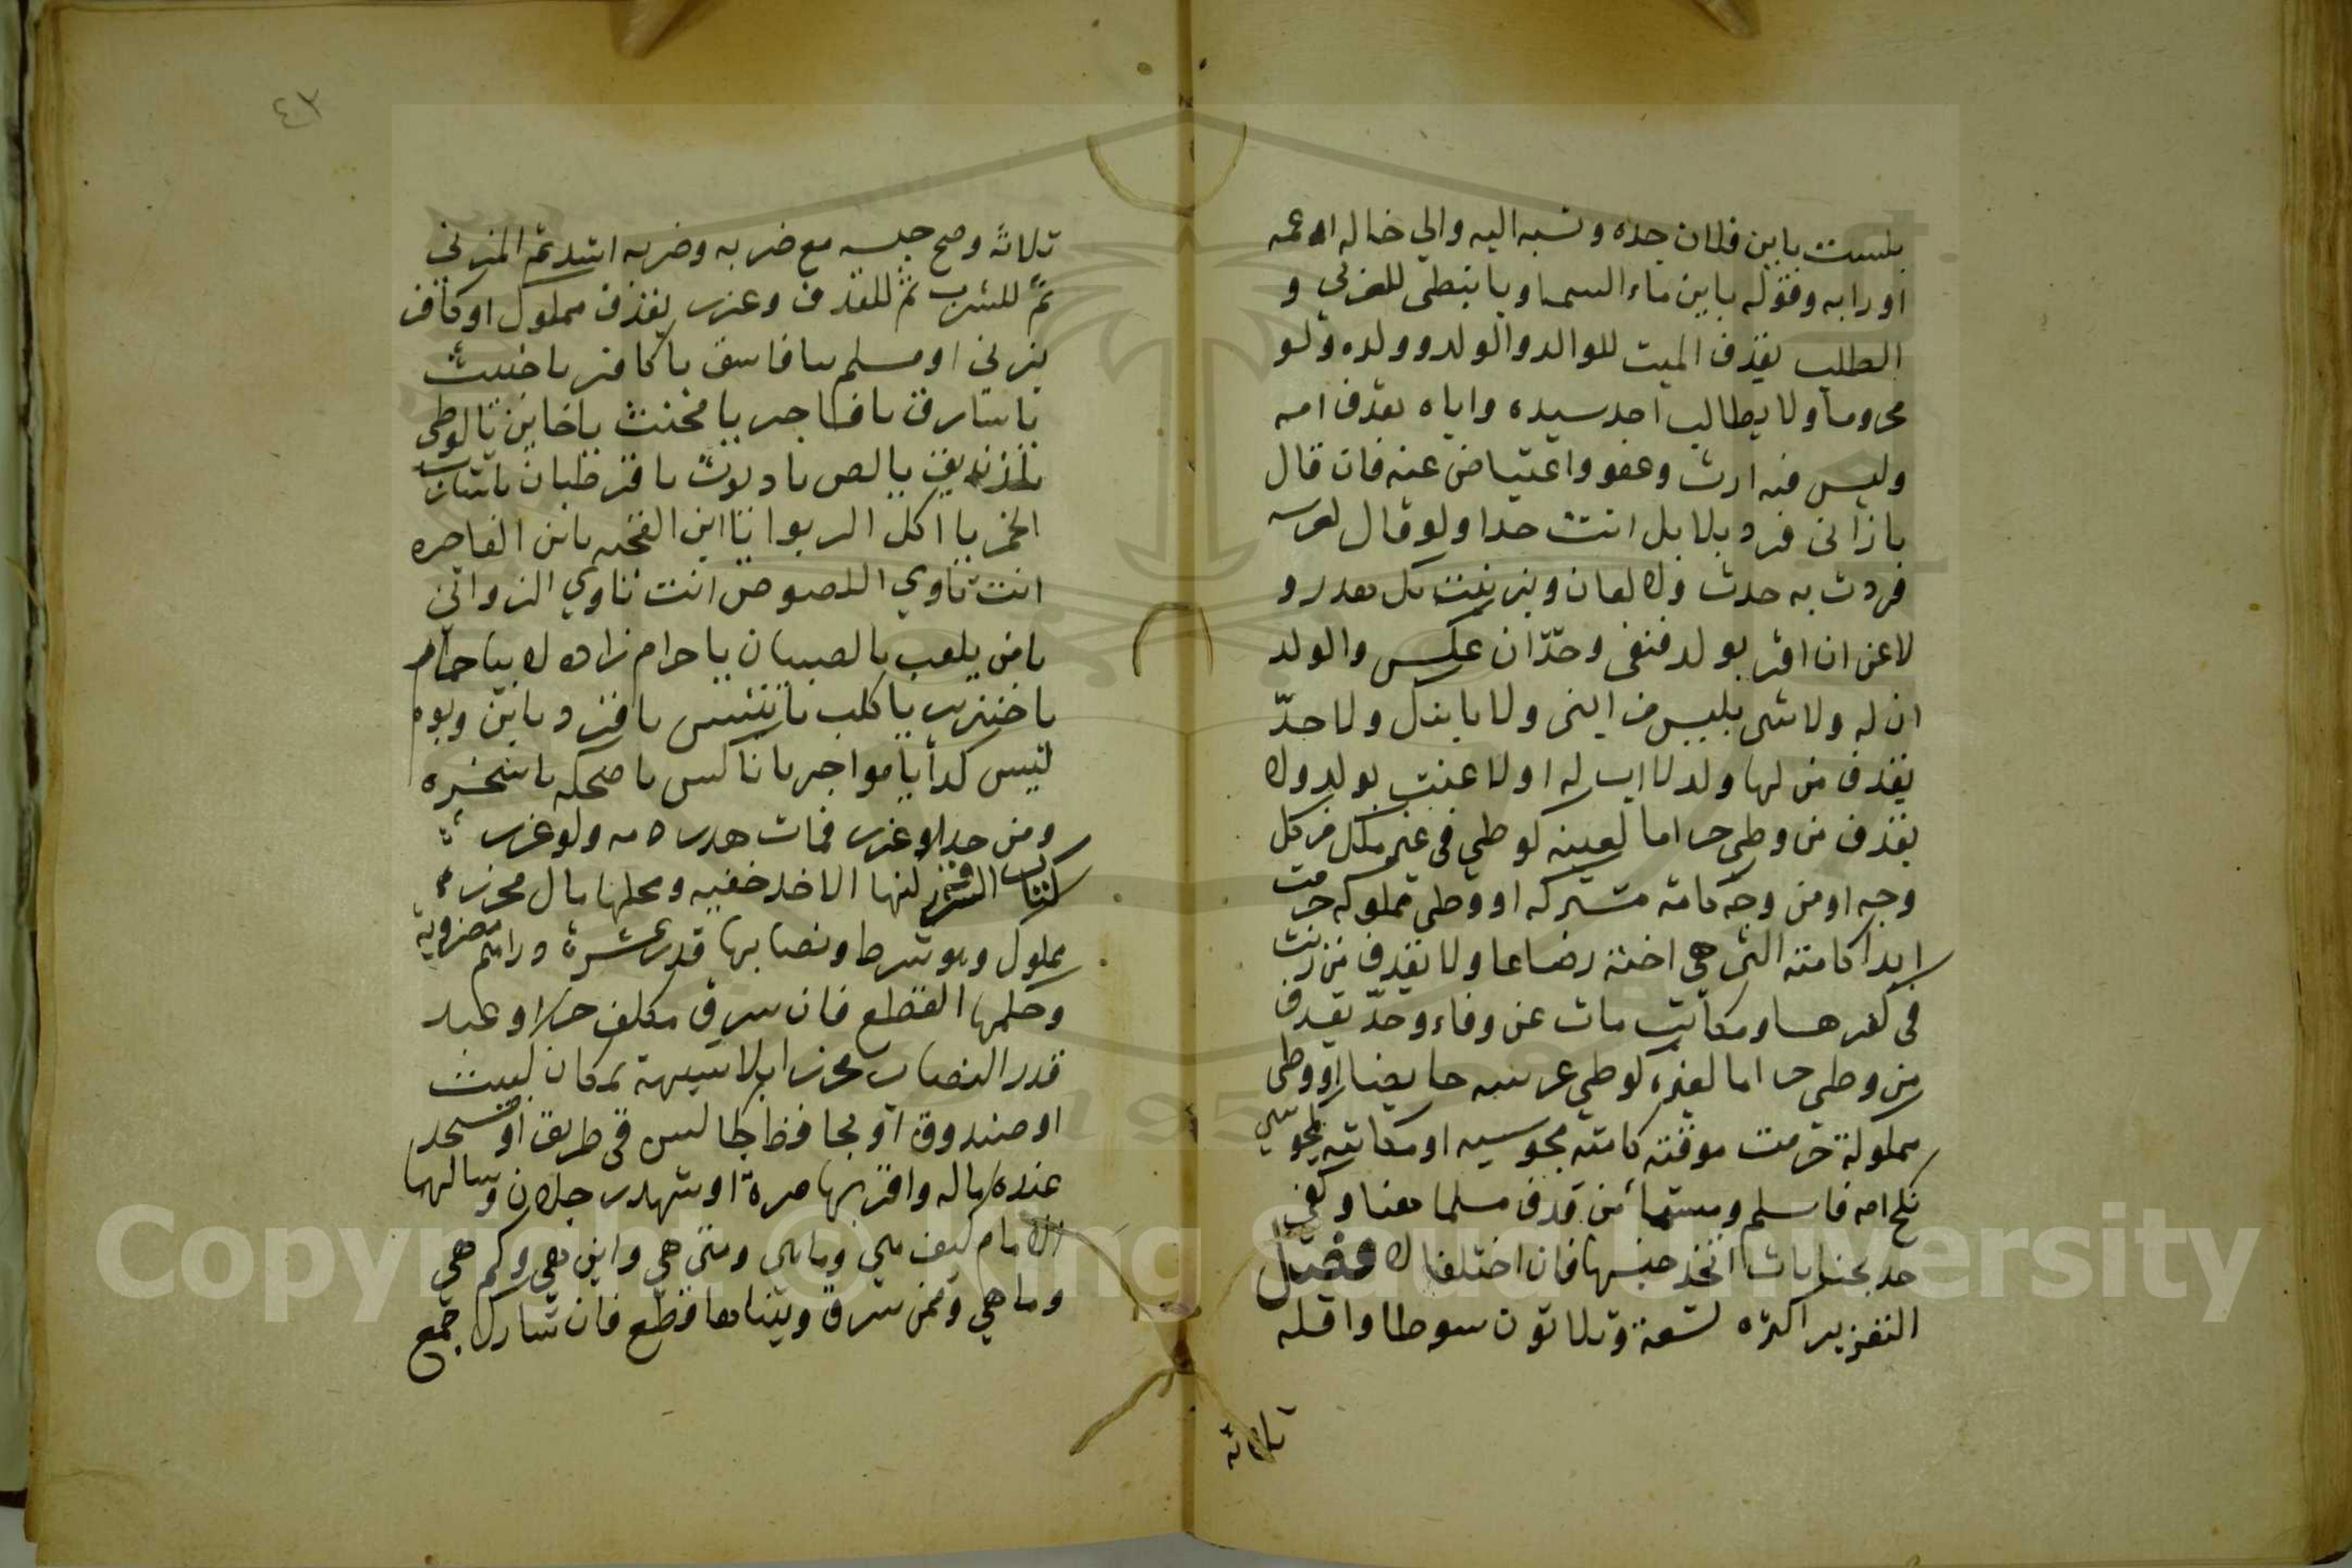 بلست بابن فلان جده ونسبه اليه والي خاله او عمه
او رابه وقوله يا بن ماء السما ويا نبطي للعربي و
الطلب بقذف الميت للوالد والولد وولده ولو
محروما ولا يطالب احد سيده واباه بقذف امه
وليس فيه ارث وعفو واعتياض عنه فان قال
يا زاني فرد بلا بل انت حدا ولو قال لعرسه
فردت به حدت ولا لعان وبزنيت بك هدر و
لاعن ان اقر بولد فنفي وحدّ ان عكس والولد
ان له ولا شي بليس من ابني ولا بابنك ولا حدّ
بقذف من لها ولد لا اب له او لاعنت بولد ولا
بقذف من وطي حراما لعينه كوطي في غير ملك من كل
وجه او من وجه كامة مشتركه او وطي مملوكه حرمت
ابدا كامته التي هي اخته رضاعا ولا بقذف من زنت
في كفرها ومكاتب مات عن وفاء وحدّ بقذف
من وطي حراما لغيره كوطي عرسه حايضا او وطي
مملوكة حرمت موقته كامته مجوسيه او مكاتبه ومجوسي
نكح امه فاسلم ومستامن قذف مسلما هنا وكفي
حد بجنايات اتحد جنسها فان اختلفا لا فصل
التعزير اكثره تسعة وثلاثون سوطا واقله
ثلاثة
٤٣
ثلاثة وصح حبسه مع ضربه وضربه اشد ثم للزني
ثمّ للشرب ثم للقذف وعزر بقذف مملوك او كافر
بزني او مسلم بيا فاسق يا كافر يا خبيث
يا سارق يا فاجر يا مخنث يا خاين يا لوطي
يا زنديق يا لص يا ديوث يا قرطبان يا شارب
الخمر يا اكل الربوا يا ابن القحبه يا بن الفاجره
انت تاوي اللصوص انت تاوي الزواني
يا من يلعب بالصبيان يا حرام زاده لا بيا حمار
يا خنزير يا كلب يا تيس يا قرد يا بن وابوه
ليس كذا يا مواجر يا ناكس يا ضحكه يا سخره
ومن حد او عزر فمات هدر دمه ولو عزر
كتاب السرقة هي الاخذ خفيه ومحلها مال محرز
مملوك وهو شرط ونصابها قدر عشرة دراهم مضروبة
وحكمها القطع فان سرق مكلف حر او عبد
قدر النصاب محرزا بلا شبهة بمكان كبيت
او صندوق او بحافظ كجالس في طريق او مسجد
عنده ماله واقر بها مرة او شهد رجلان وسالهما
الامام كيف هي وما هي ومتي هي واين هي وكم هي
وما هي وممن سرق وبيناها قطع فان شارك جمع